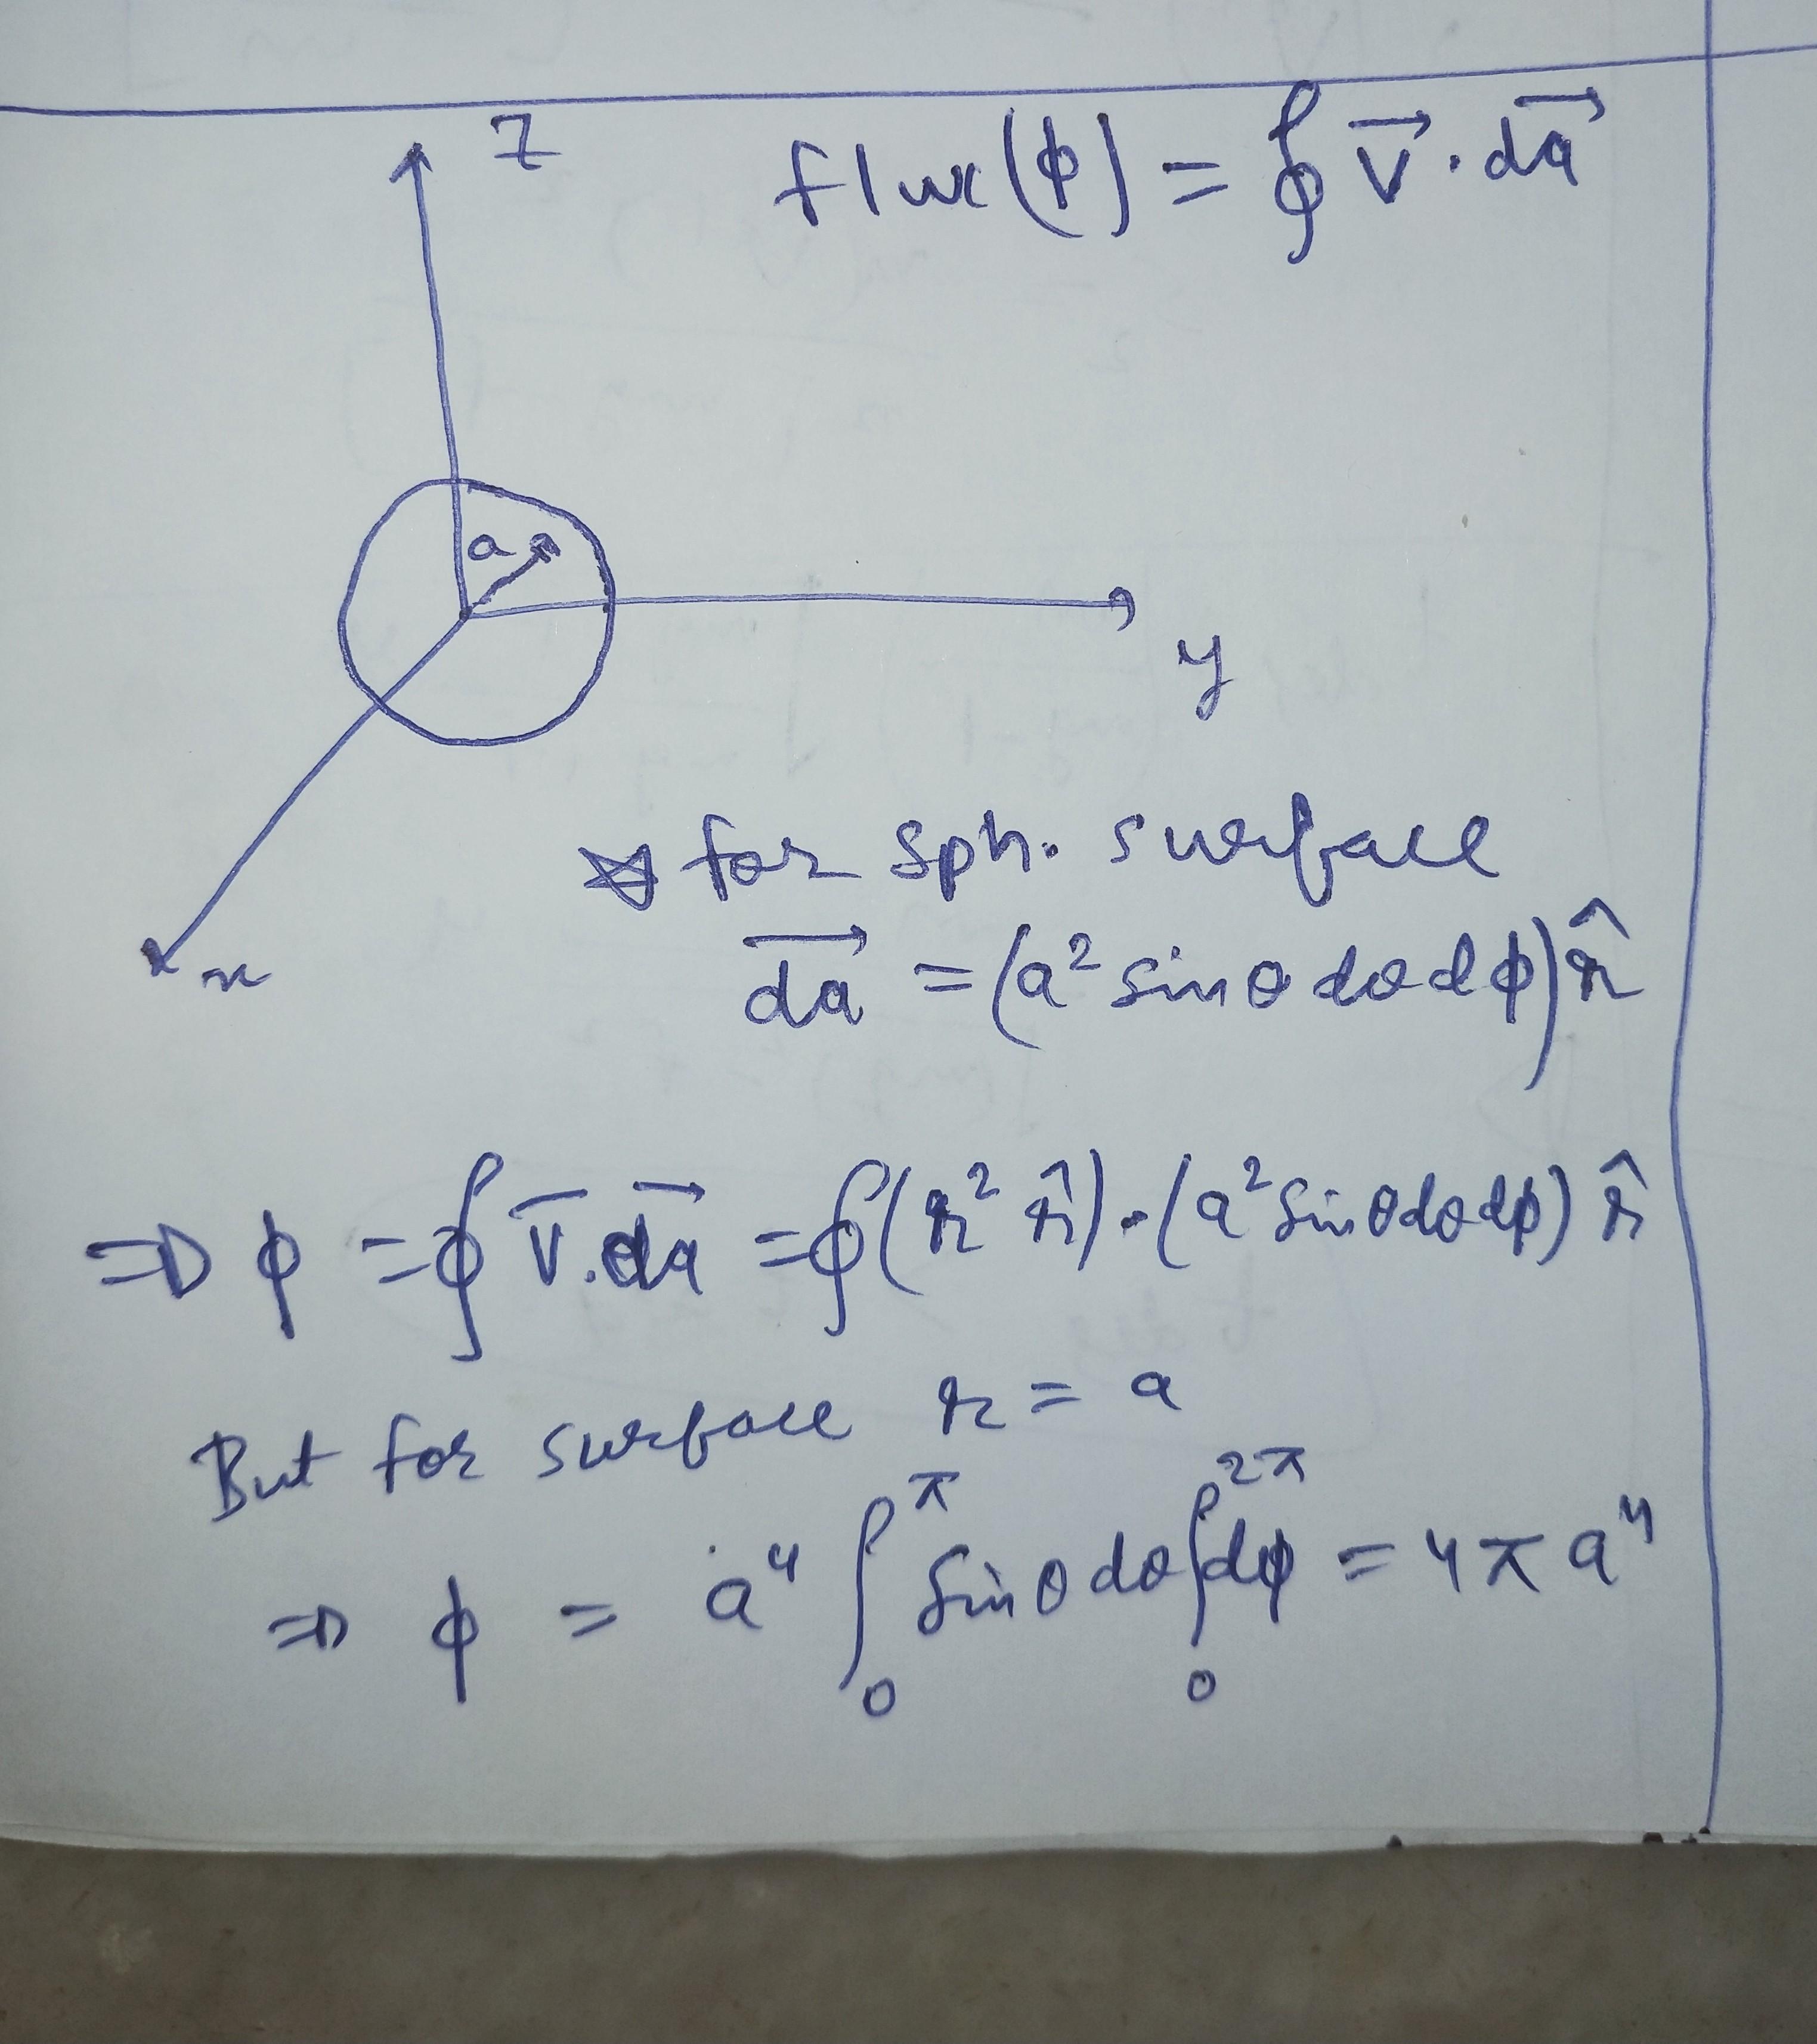 z
flux(ϕ) = ∮ V⃗ · da⃗
a
y
x
for sph. surface
da⃗ = (a² sinθ dθ dϕ) r̂
⇒ ϕ = ∮ V̅.da⃗ = ∮(r² r̂)·(a² sinθ dθ dϕ) r̂
But for surface r = a
⇒ ϕ = a⁴ ∫₀^π sinθ dθ ∫₀^2π dϕ = 4πa⁴